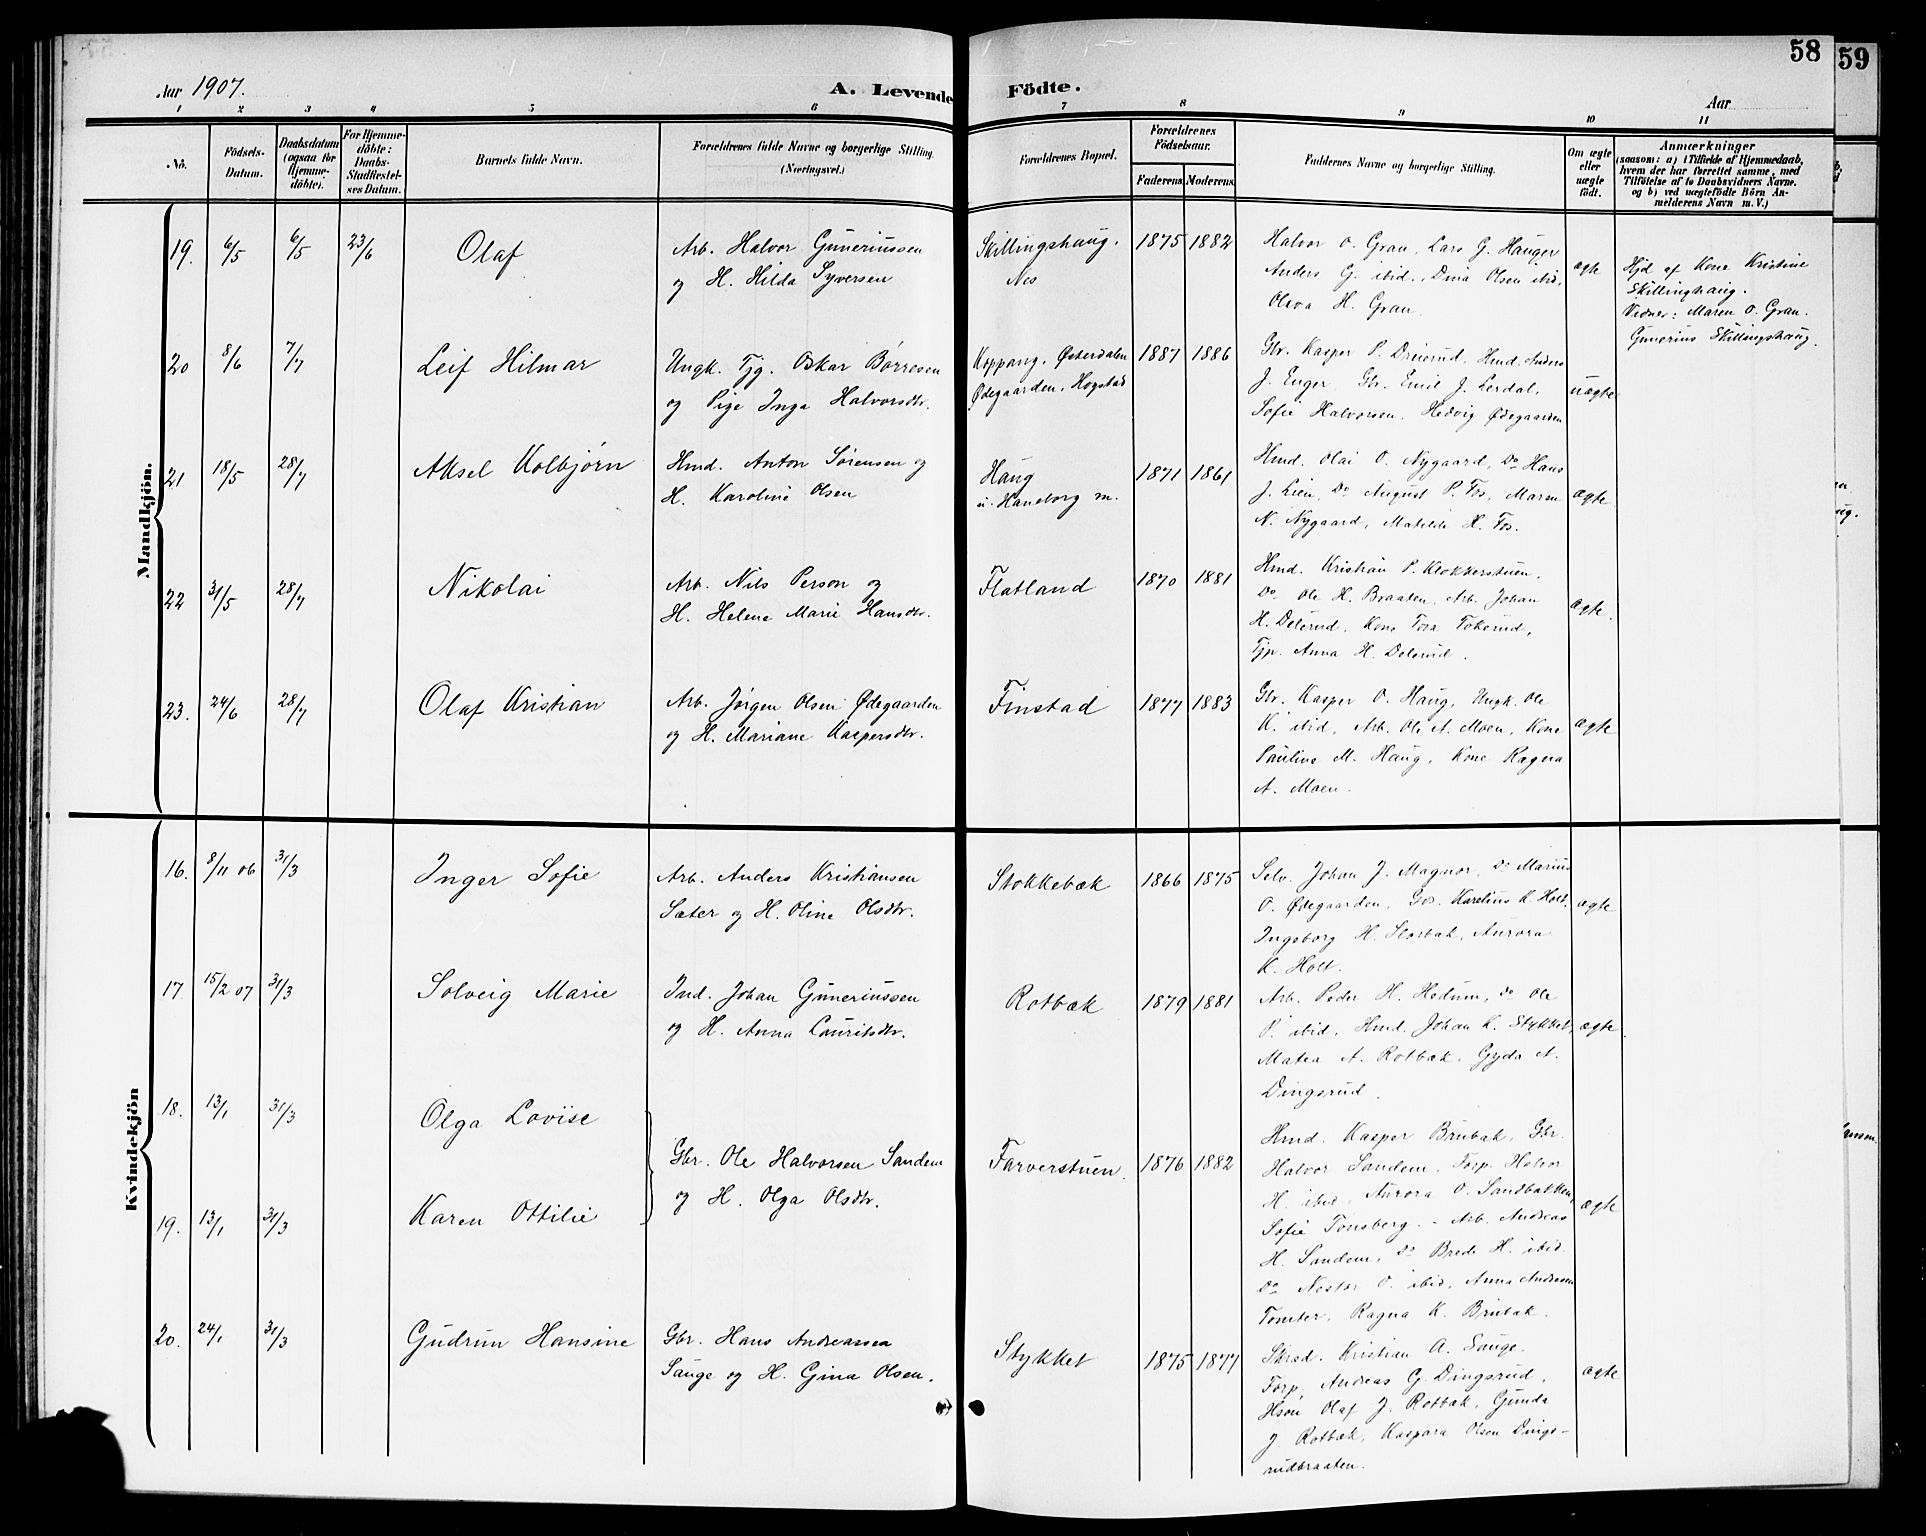 58
59
Aar 1907.
A. Levende Födte.
Aar
1 2 3 4 5 6 7 8 9 10 11
No.
Födsels-Datum.
Daabsdatum (ogsaa for Hjemme-döbte).
For Hjemme-döbte: Daabs-Stadfæstel-ses Datum.
Barnets fulde Navn.
Forældrenes fulde Navne og borgerlige Stilling. (Næringsvei.)
Forældrenes Bopæl.
Forældrenes Födselsaar.
Faderens. Moderens.
Faddernes Navne og borgerlige Stilling.
Om ægte eller uægte födt.
Anmærkninger
(saasom: a) i Tilfælde af Hjemmedaab,
hvem der har forrettet samme, med
Tilföielse af to Daabsvidners Navne.
og b) ved uægtefödte Börn An-
melderens Navn m. V.)
Mandkjön.
19. 6/5 6/5 23/6 Olaf
Arb. Halvor Guneriussen
og H. Hilda Syversen
Skillingshaug.
Nes
1875 1882
Halvor O. Gran, Lars G. Hauger
Anders G. ibid., Dina Olsen ibid,
Oleva H. Gran.
ægte
Hjd af Kone Kristine
Skillinghaug.
Vidner: Maren O. Gran.
Gunerius Skillingshaug.
20 8/6 7/7 Leif Hilmar
Ungk. Tjg. Oskar Børresen
og Pige Inga Halvorsdtr.
Koppang, Østerdalen
Ødegaarden, Hogstad
1887 1886
Gbr. Kasper P. Druerud, Hmd. Anders
J. Enger, Gbr. Emil J. Lerdal,
Sofie Halvorsen, Hedvig Ødegaarden
uægte
21 18/5 28/7 Aksel Kolbjørn
Hmd. Anton Sørensen og
H. Karoline Olsen
Haug
u. Haneborg m.
1871 1861
Hmd. Olai O. Nygaard, Do Hans
J. Lien, Do August P. Fos, Maren
N. Nygaard, Matilde H. Fos.
ægte
22 31/5 28/7 Nikolai
Arb. Nils Person og
H. Helene Marie Hansdtr.
Flatland
1870 1881
Hmd. Kristian P. Klokkerstuen,
Do Ole H. Braaten, Arb. Johan
H. Delerud, Kone Tora Tokerud,
Tjp. Anna H. Delerud.
ægte.
23. 24/6 28/7 Olaf Kristian
Arb. Jørgen Olsen Ødegaarden
og H. Mariane Kaspersdtr.
Finstad
1877 1883
Gbr. Kasper O. Haug, Ungk. Ole
K. ibid, Arb. Ole A. Moen, Kone
Pauline M. Haug, Kone Ragna
A. Moen.
ægte
Kvindekjön
16. 8/11 06 31/3 Inger Sofie
Arb. Anders Kristiansen
Sæter og H. Oline Olsdtr.
Stokkebæk
1866 1875
Selv. Johan J. Magnor, Do Marius
O. Ødegaarden, Gbs. Karelius K. Holt,
Ingeborg H. Storbæk, Aurora
K. Holt.
ægte
17. 15/2 07 31/3 Solveig Marie
Ind. Johan Guneriussen
og H. Anna Lauritsdtr.
Rotbæk
1879 1881
Arb. Peder H. Hedum, Do Ole
P. ibid, Hmd. Johan K. Stykket,
Matea A. Rotbæk, Gyda A.
Dingsrud.
ægte
18. 13/1 31/3 Olga Lovise
19. 13/1 31/3 Karen Ottilie
Gbr. Ole Halvorsen Sandem
og H. Olga Olsdtr.
Farverstuen.
1876 1882
Hmd. Kasper Brubæk, Gbr.
Halvor Sandem, Torp. Halvor
H. ibid, Aurora O. Sandbækken,
Sofie Tonsberg. - Arb. Andreas
H. Sandem, Do Brede H. ibid.
Do Nestor O. ibid, Anna Andresen
Tomter, Ragna K. Brubæk.
ægte
20. 24/1 31/3 Gudrun Hansine
Gbr. Hans Andreassen
Sauge og H. Gina Olsen.
Stykket
1875 1877
Skræd. Kristian A. Sauge.
Torp. Andreas G. Dingsrud,
Hsøn Olaf J. Rotbæk, Gunda
J. Rotbæk, Kaspara Olsen Dings-
rudbraaten.
ægte